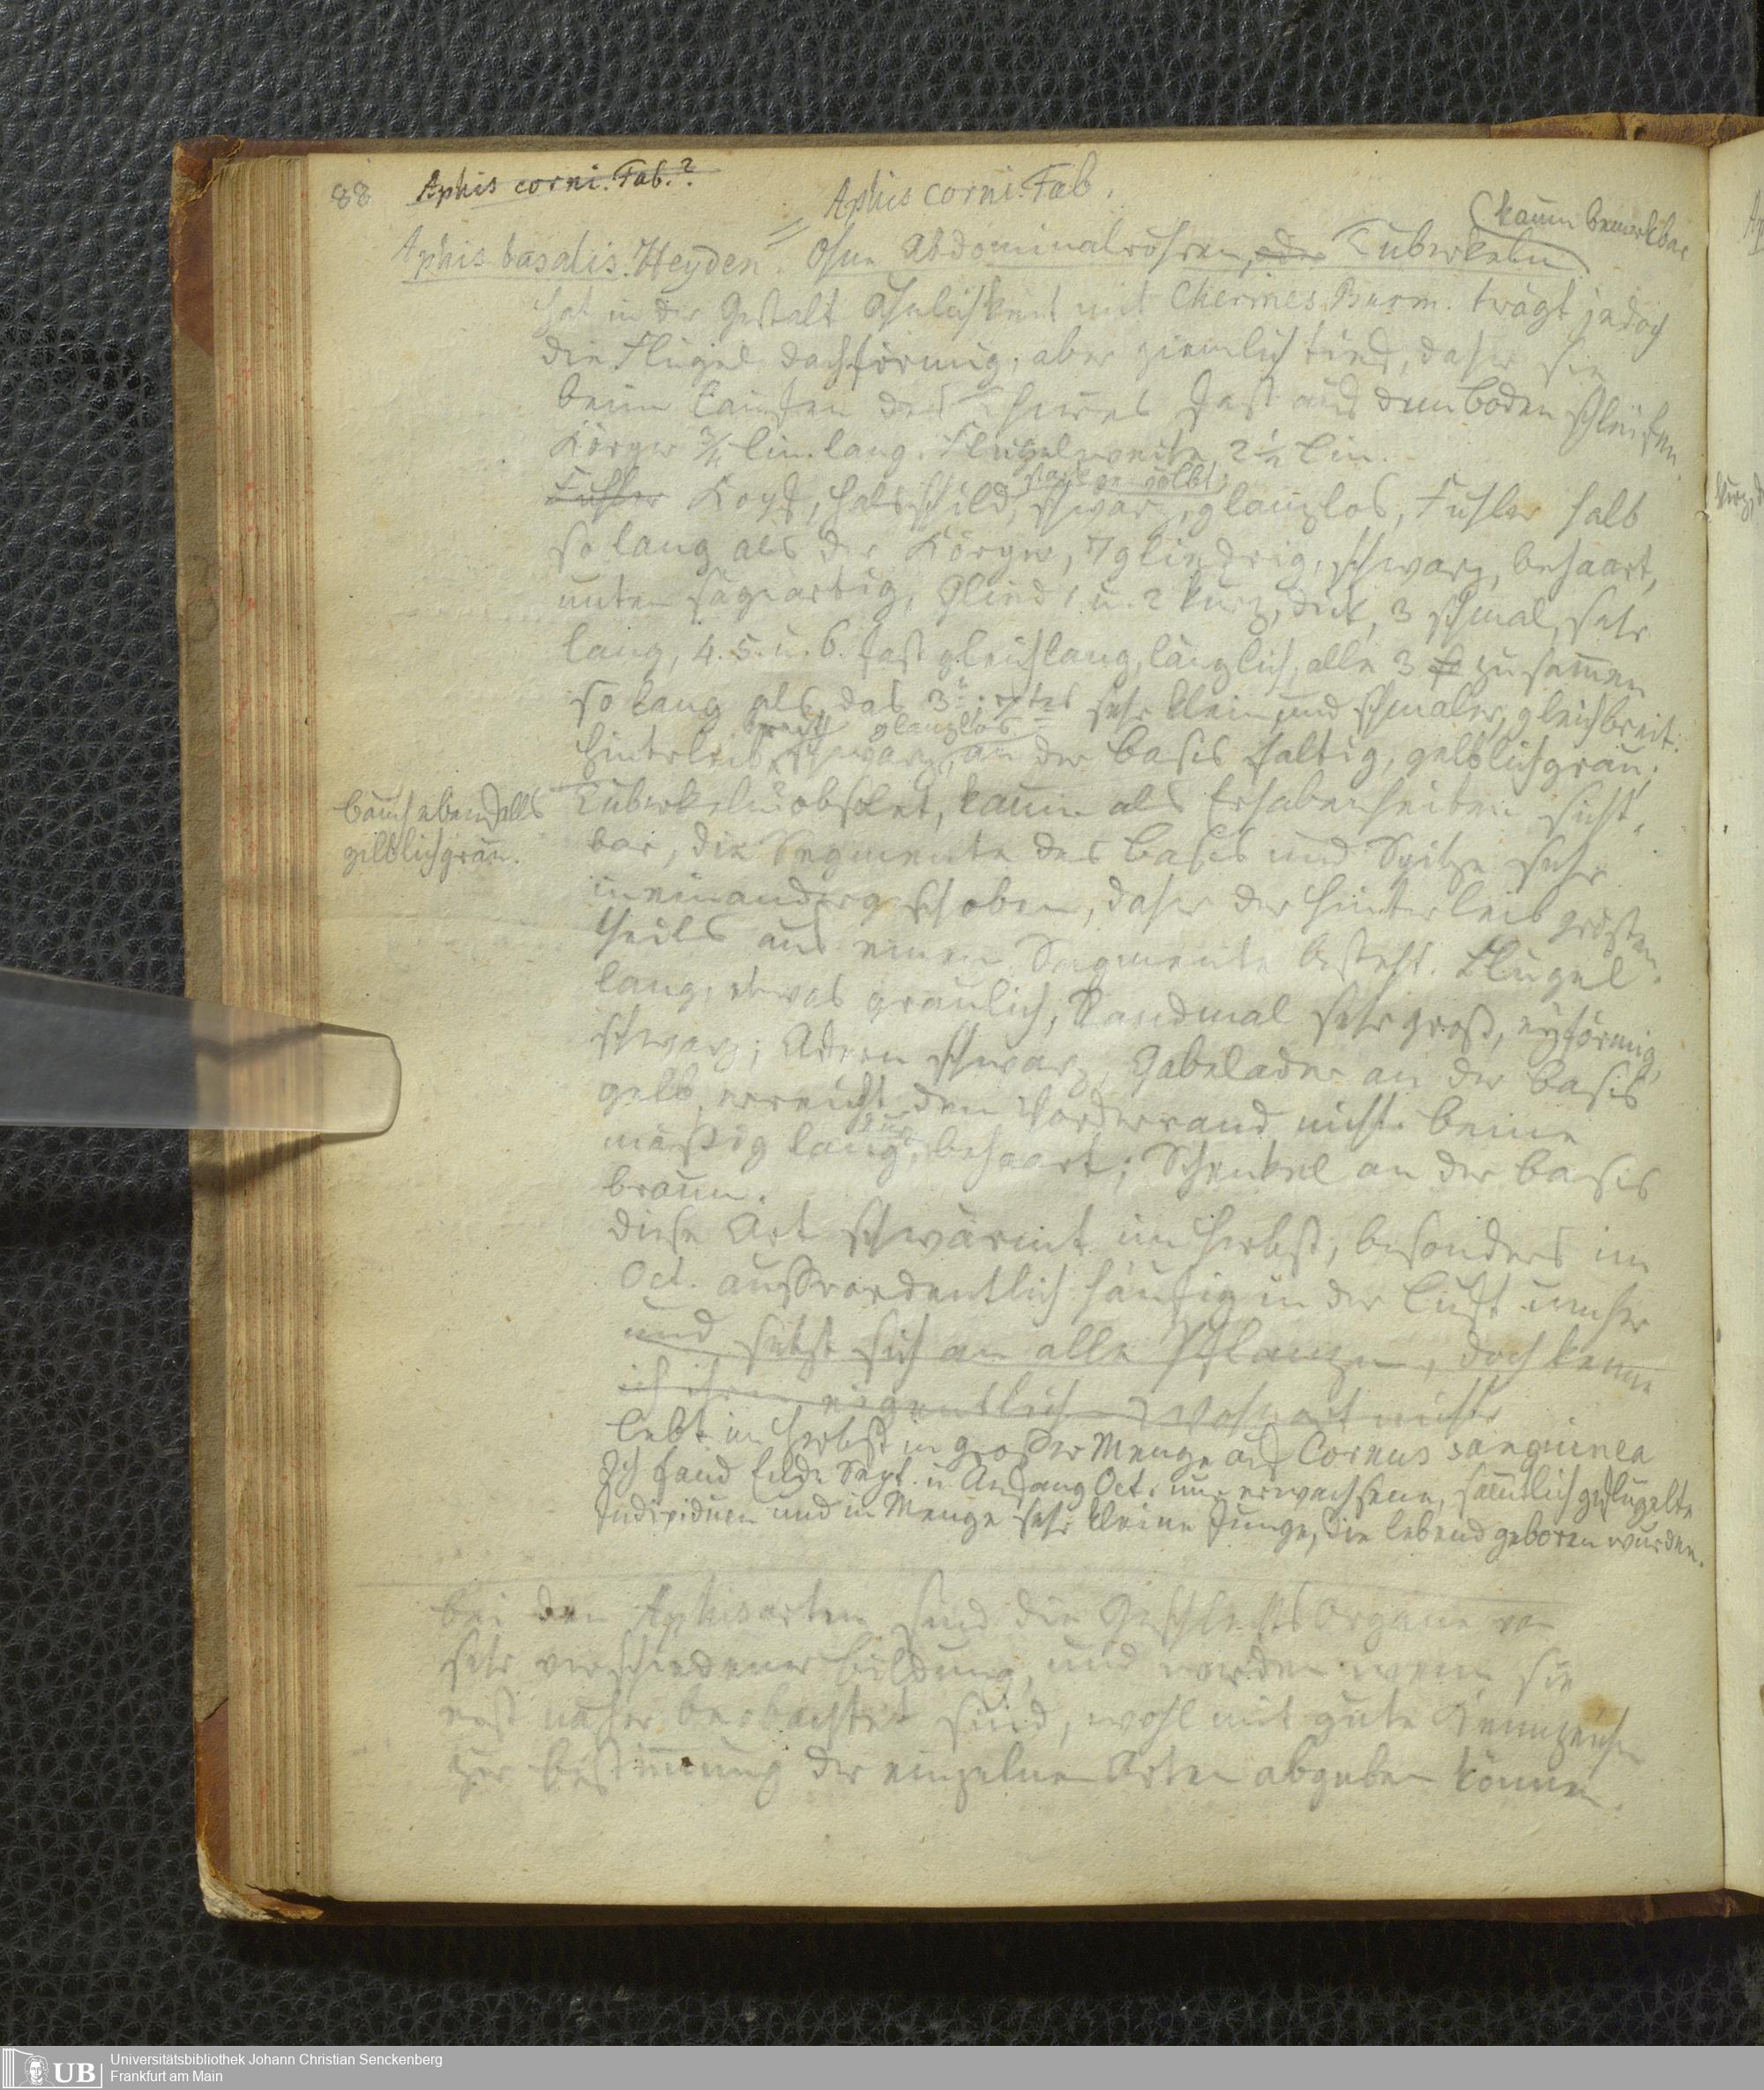 88 Aphis corni. Fab.?
Aphis corni. Fab.
Aphis basalis. Heyden. = Ohne Abdominalröhren, oder Tuberkeln (kaum bemerkbar
hat in der Gestalt Ähnlichkeit mit Chermes Burm. trägt jedoch
die Flügel dachförmig, aber ziemlich tief, daher sie
beim Laufen des Thieres fast auf dem Boden schleifen.
Körper ¾ lin. lang. Flügelweite 2½ Lin.
stark gewölbt,
Fühler Kopf, Halsschild, schwarz, glanzlos, Fühler halb
so lang als der Körper, 7gliedrig, schwarz, behaart,
unten sägeartig, Glied 1. u. 2 kurz, dick, 3 schmal, sehr
lang, 4. 5. u. 6. fast gleichlang, länglich, alle 3 zusam̄en
so lang als das 3te; 7tes sehr klein und schmaler, gleichbreit.
glanzlos
Hinterleib, schwarz, an der Basis faltig, gelblichgrün;
Tuberkeln obsolet, kaum als Erhabenheiten sicht-
Bauch ebenfalls
gelblichgrün.
bar, die Segmente der Basis und Spitze sehr
ineinandergeschoben, daher der Hinterleib größten-
theils aus einem Segmente besteht. Flügel
lang, etwas graulich, Randmal sehr groß, eyförmig,
schwarz; Adern schwarz, Gabelader an der Basis
gelb, erreicht den Vorderrand nicht. Beine
mäßig lang, behaart; Schenkel an der Basis
braun.
Diese Art schwärmt im Herbst, besonders im
Oct. außerordentlich häufig in der Luft umher
und setzt sich an alle Pflanzen, doch kenne
ich ihren eigentlichen Wohnort nicht.
Lebt im Herbst in großer Menge auf Cornus sanguinea
Ich fand Ende Sept. u. Anfang Oct. nur erwachsene, sämtlich geflügelte
Individuen und in Menge sehr kleine Junge, die lebend geboren wurden.
Bei den Aphisarten sind die Geschlechts Organe von
sehr verschiedener Bildung, und werden wenn sie
erst näher beobachtet sind, wohl mit gute Kennzeichen
zur Bestim̄ung der einzelnen Arten abgeben können.
Universitätsbibliothek Johann Christian Senckenberg
Frankfurt am Main
UB